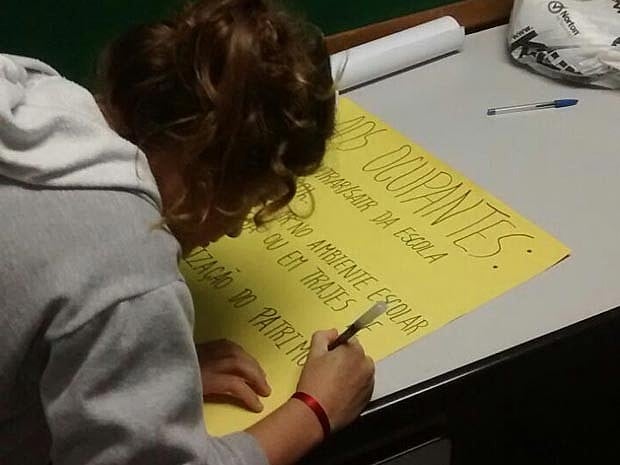 AOS OCUPANTES:
TRAR/SAIR DA ESCOLA
NO AMBIENTE ESCOLAR
OU EM TRAJES DE
IZAÇÃO DO PATRIMÔ
Norton
www.